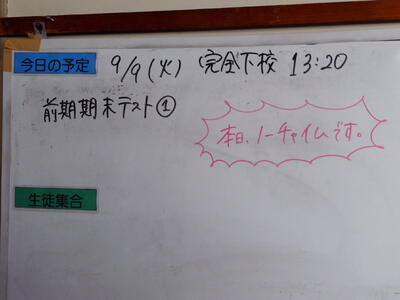 今日の予定 9/9(火) (完全下校 13:20
前期期末テスト①
本日、ノーチャイムです。
生徒集合